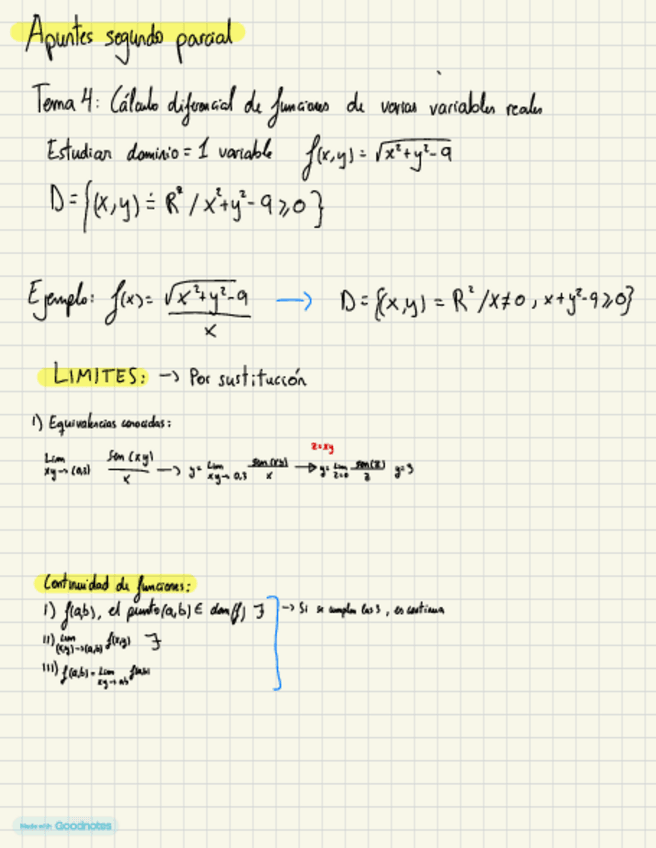 Apuntes segundo parcial
Tema 4: Cálculo diferencial de funciones de varias variables reales
Estudiar dominio = 1 variable f(x,y) = √x²+y²-9
D = {(x,y) ≐ R² / x²+y²-9 ⩾ 0}
Ejemplo: f(x) = √x²+y²-9 / x → D = {(x,y) = R² / x≠0, x+y²-9 ⩾ 0}
LIMITES: → Por sustitución
1) Equivalencias conocidas:
z=xy
Lim xy→(0,3) sen(xy)/x → y = Lim xy→0,3 sen(xy)/x → y = Lim z=0 sen(z)/z y=3
Continuidad de funciones:
i) f(a,b), el punto (a,b) ∈ dom(f) ∃ → Si se cumplen las 3, es continua
ii) Lim (x,y)→(a,b) f(x,y) ∃
iii) f(a,b) = Lim xy→ab f(ab)
Made with Goodnotes